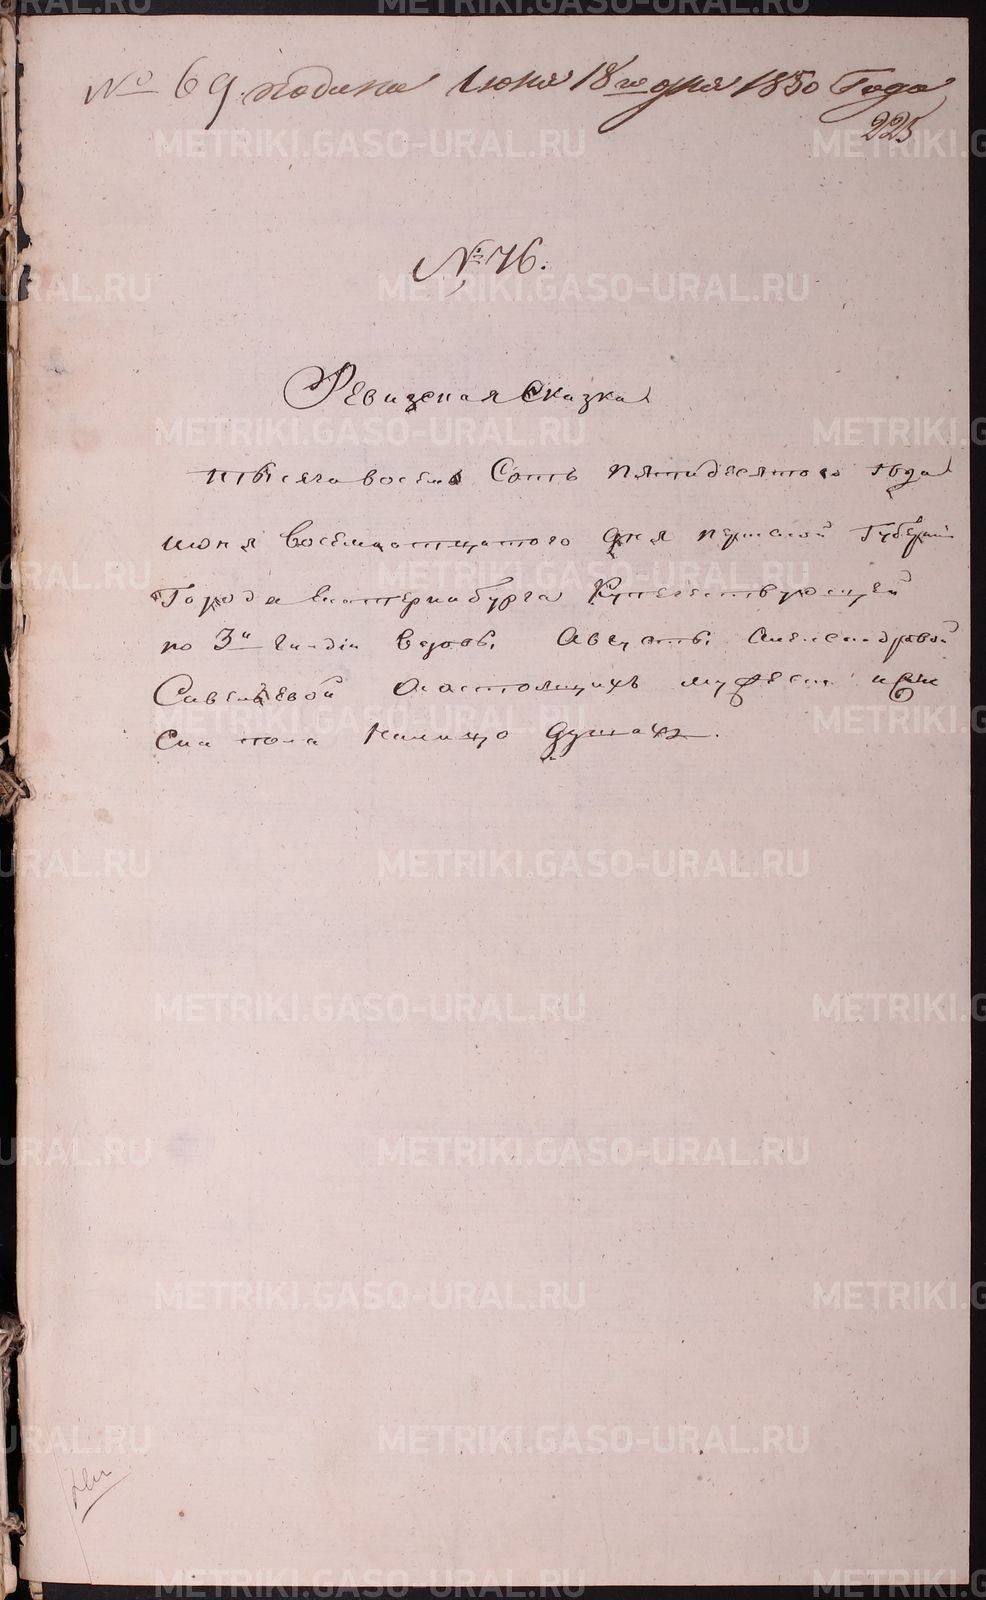 № 69. подана Июня 18го дня 1850 Года
225
№ 76.
Ревизская Сказка
тысяча восемь Сотъ пятидесятого года
июня Восемнатцатого дня пермской Губернiи
Города Екатеринбурга Купечествующей
по 3й гилдiи вдовы Августы Александровой
Савельевой онастоящихъ мужеска иже
ска пола налицо душахъ.
METRIKI.GASO-URAL.RU